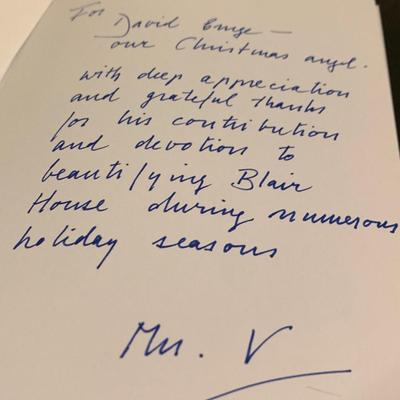 For
David Bunge —
our Christmas angel.
with deep appreciation
and grateful thanks
for his contribution
and devotion to
beautifying Blair
House during numerous
holiday seasons
Mrs. V